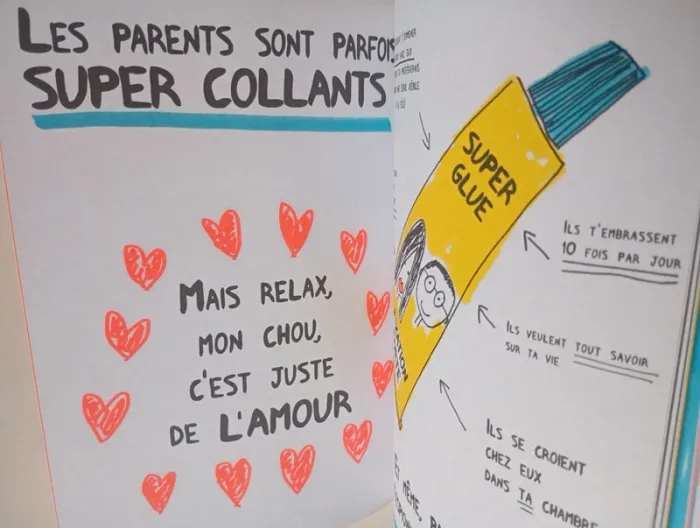 LES PARENTS SONT PARFOIS
SUPER COLLANTS
MAIS RELAX,
MON CHOU,
C'EST JUSTE
DE L'AMOUR
SUPER
GLUE
ILS T'EMBRASSENT
10 FOIS PAR JOUR
ILS VEULENT TOUT SAVOIR
SUR TA VIE
ILS SE CROIENT
CHEZ EUX
DANS TA CHAMBRE
MÊME,